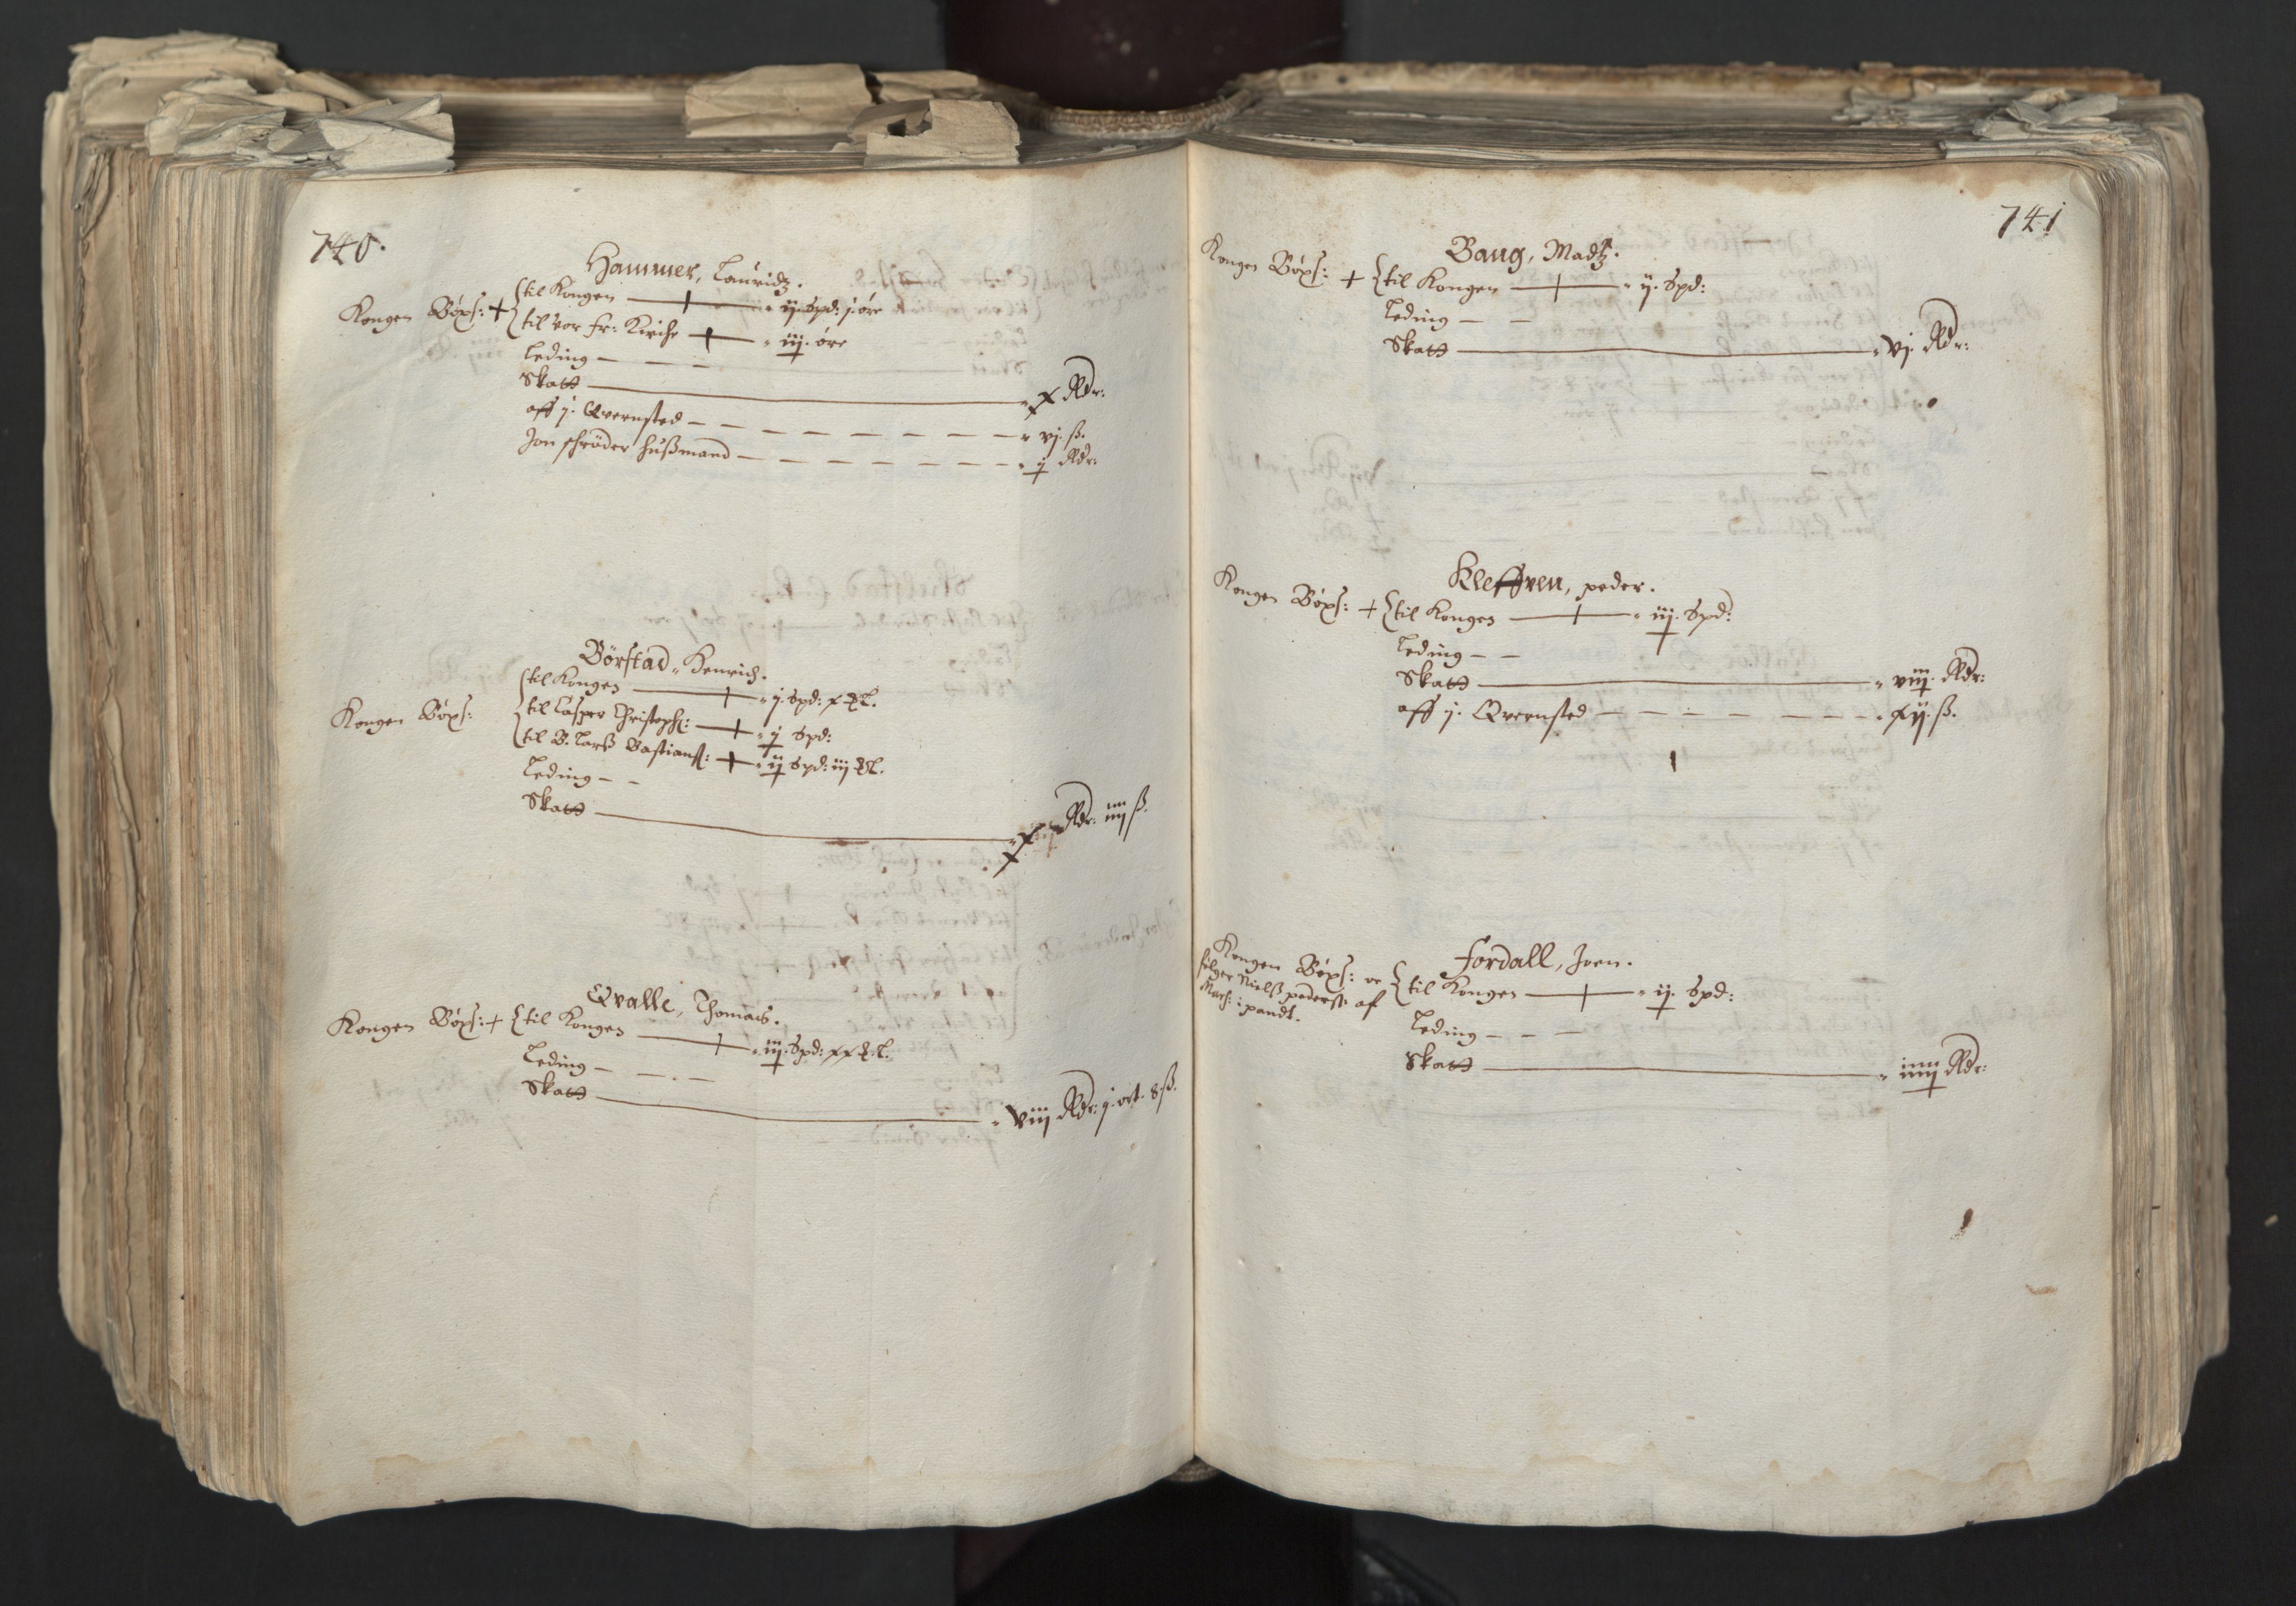 740.
Hammer, Lauridtz.
Kongen Böxs: + til Kongen — ij. Spd: j. øre
til vor Fr: Kirche — iij. øre
Leding — — —
Skatt — x Rdr:
aff j. Qvernsted — vj. ß.
Jon schröder Hußmand — j Rdr:
Börstad, Henrich.
Kongen Böxs:
til Kongen — ij. Spd: x ℔.
til Casper Christophs: — ij Spd:
til B. Larß Bastianß: — ij Spd: iij ℔.
Leding — —
Skatt — x Rdr: iiij ß.
Qvalle, Thomas.
Kongen Böxs: + til Kongen — iij. Spd: xx ℔.
Leding — — —
Skatt — viij Rdr: j. ort. 8. ß.
741
Baug, Madtz.
Kongen Böxs: + til Kongen — ij. Spd:
Leding — —
Skatt — vj. Rdr:
Kleffven, peder.
Kongen Böxs: + til Kongen — iij. Spd:
Leding — —
Skatt — viij. Rdr:
aff j. Qvernsted — xij. ß.
Fordall, Joen.
Kongen Böxs: oc til Kongen — ij. Spd:
følger Nielß pederß: af
Mars: i pandt.
Leding — — —
Skatt — iiij Rdr: